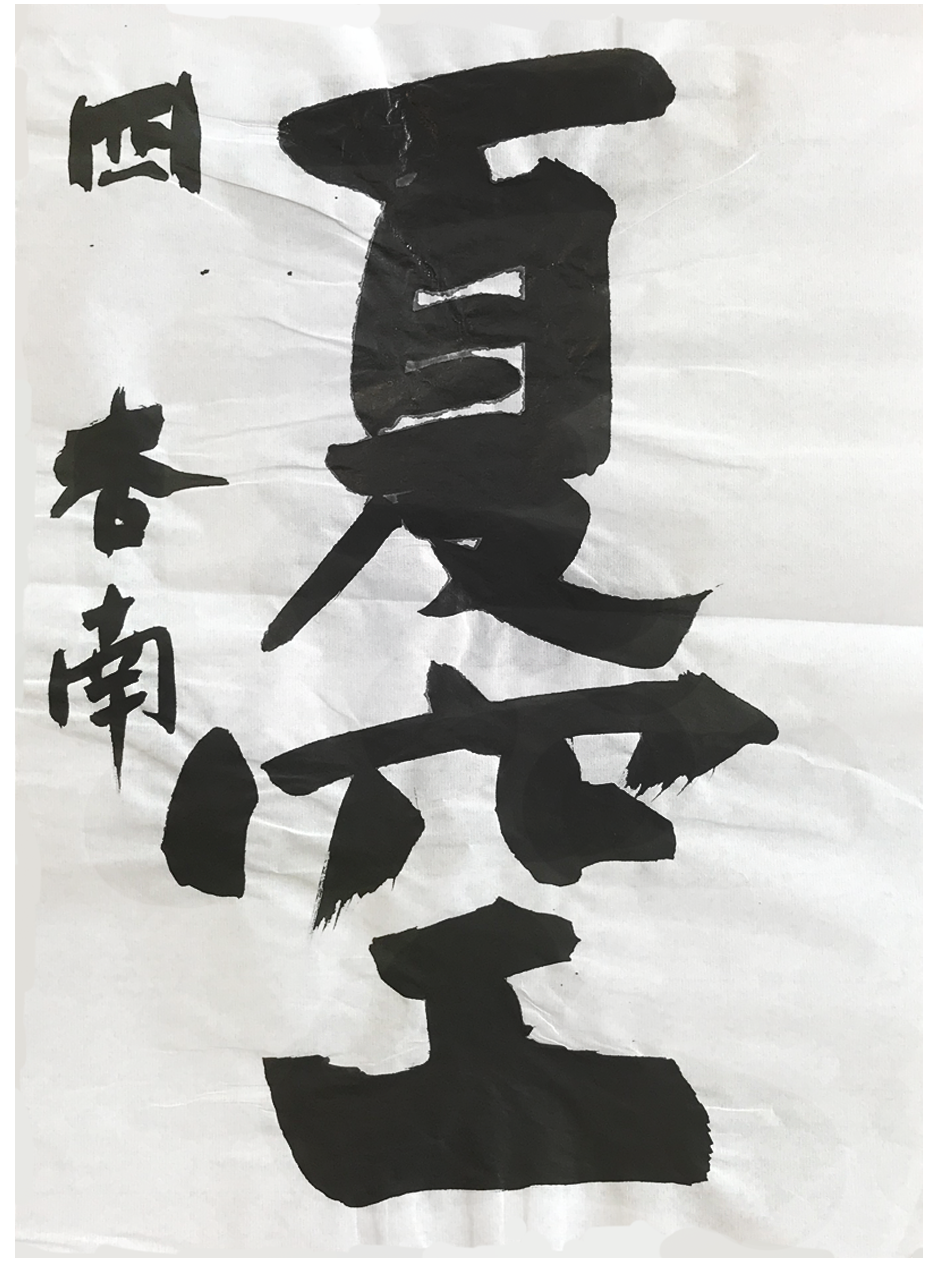 夏空
四 杏南